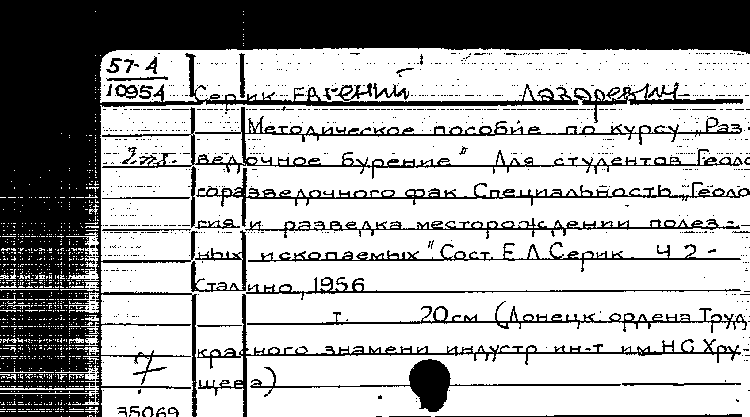 57-4
10954
Серик, Евгений Лазаревич
Методическое пособие по курсу „Раз-
ведочное бурение" Для студентов Геоло
горазведочного фак. Специальность „Геоло
гия и разведка месторождении полез-
ных ископаемых" Сост. Е.Л.Серик. Ч 2-
Сталино, 1956
т. 20см (Донецк. ордена Труд
красного знамени индустр ин-т им. Н С Хру
щева)
7
35069